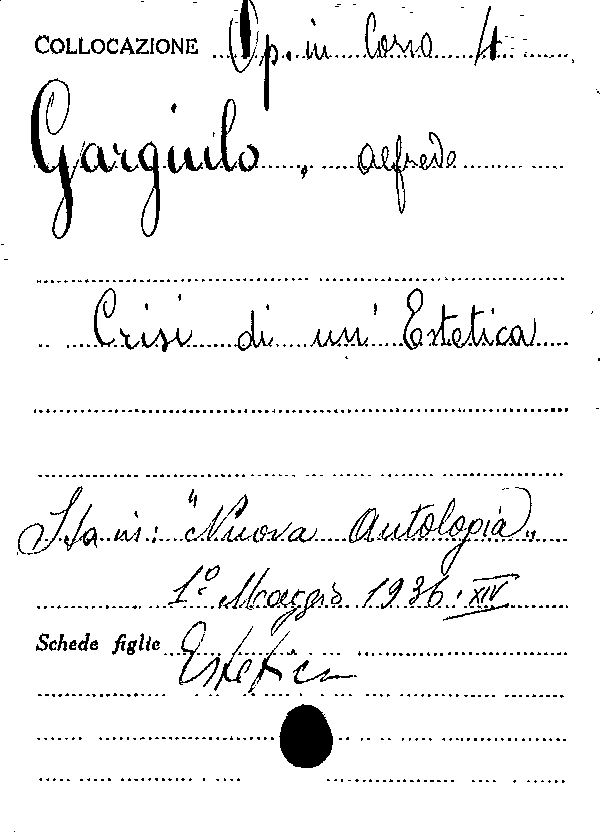 COLLOCAZIONE Op. in Corso 4
Gargiulo, Alfredo
Crisi di un' Estetica
Sta in: "Nuova Antologia„
1º Maggio 1936. XIV
Schede figlie Estetica